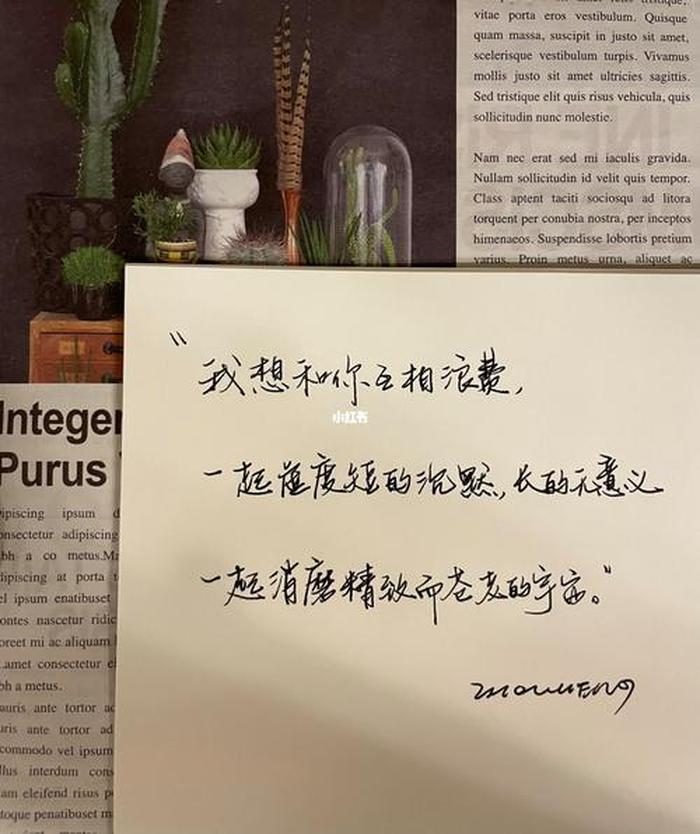 vitae porta eros vestibulum. Quisque
quam massa, suscipit in justo sit amet,
scelerisque vestibulum turpis. Vivamus
mollis justo sit amet ultricies sagittis.
Sed tristique elit quis risus vehicula, quis
sollicitudin nunc molestie.
Nam nec erat sed mi iaculis gravida.
Nullam sollicitudin id velit quis tempor.
Class aptent taciti sociosqu ad litora
torquent per conubia nostra, per inceptos
himenaeos. Suspendisse lobortis pretium
varius. Proin metus urna, aliquet ac
"我想和你互相浪费,
小红书
一起虚度短的沉默,长的无意义
一起消磨精致而苍老的宇宙。"
Integer
Purus
ipiscing ipsum d
onsectetur adipiscing
bh a co metus.Ma
dipiscing at porta t
el ipsum enatibuset
ontes nascetur ridic
oreet mi ac aliquam
.amet consectetur el
bh a metus.
auris ante tortor ac
uris ante tortor ad
commodo vel ipsum
llus interdum cons
am eleifend risus p
toque penatibuset m